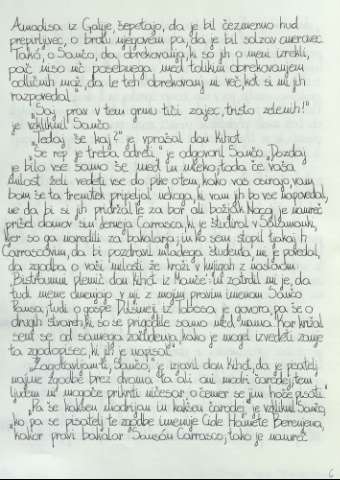 Amadisa iz Galije, šepetajo, da je bil čezmerno hud
prepirljivec, o bratu njegovem pa, da je bil solzav omerovec.
Tako, o Sančo, da obrekovanja, ki so jih o meni izrekli,
pač niso nič posebnega med tolikim obrekovanjem
odličnih mož, da le teh obrekovanj ni več, kot si mi jih
razpovedal."
"Saj prav v tem grmu tiči zajec, tristo zelenih!"
je vzkliknil Sančo.
"Tedaj še kaj?" je vprašal don Kihot.
"Še rep je treba odreti," je odgovoril Sančo. "Dozdaj
je bilo vse samo še med in mleko, toda če vaša
milost želi vedeti vse do pike o tem, kako vas osirajo, vam
bom še ta trenutek pripeljal nekoga, ki vam jih bo vse napovedal,
ne da bi si jih pridržal le za bor ali božjak. Nocoj je namreč
prišel domov sin Jerneja Carrasca, ki je študiral v Salamanki,
kjer so ga naredili za bakalara; in ko sem stopil tjakaj h
Carrascovim, da bi pozdravil mladega študenta, mi je povedal,
da zgodba o vaši milosti že kroži v knjigah z naslovom
"Bistroumni plemič don Kihot iz Manče"; in zatrdil mi je, da
tudi mene omenjajo v nji z mojim pravim imenom Sančo
Pansa, tudi o gospe Dulsineji iz Tobosa je govora, pa še o
drugih stvareh, ki so se prigodile samo med nama. Kar križal
sem se od samega začudenja, kako je mogel izvedeti zanje
ta zgodopisec, ki jih je napisal."
"Zagotavljam ti, Sančo," je izjavil don Kihot, da je pisatelj
najine zgodbe brez dvoma ta ali oni modri čarodej; tem
ljudem ni mogoče prikriti ničesar, o čemer se jim hoče pisati."
"Pa še kakšen modrijan in kakšen čarodej," je vzkliknil Sančo,
"ko pa se pisatelj te zgodbe imenuje Cide Hamete Berenjena,
kakor pravi bakalar Sansón Carrasco; tako je namreč
6